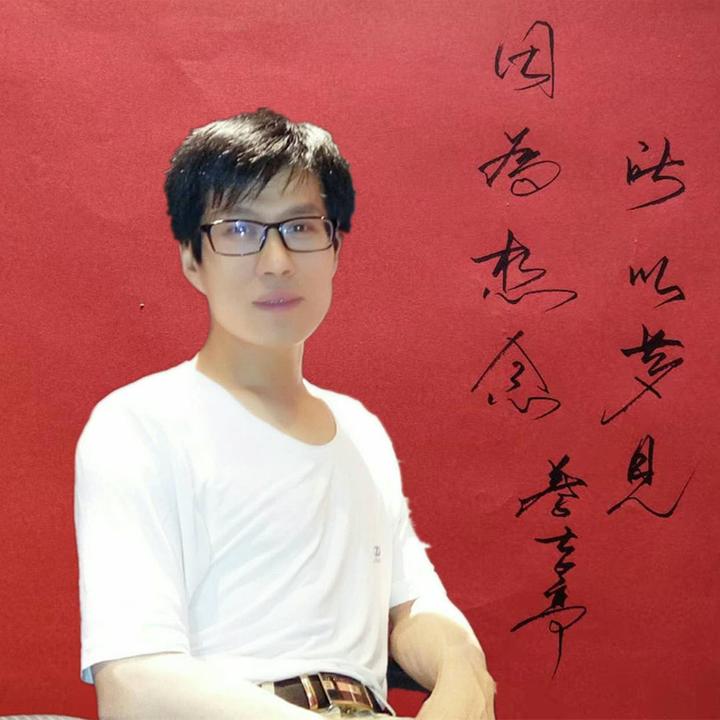 因為想念
所以夢見